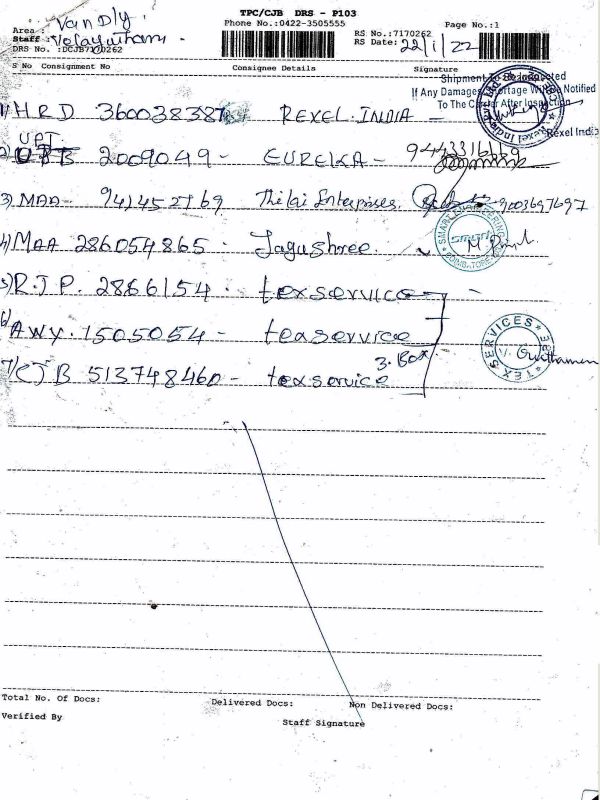 TPC/CJB DRS - P103
Phone No.:0422-3505555
Page No.:1
Area : Van Dly
Staff : Velayutham
DRS No. :DCJB7170262
RS No.:7170262
RS Date: 22/1/22
S No Consignment No Consignee Details Signature
Shipment To Be Inspected
If Any Damages Shortage Will Be Notified
To The Carrier After Inspection
Rexel India
1) HRD 360038387 REXEL INDIA -
2) UPT 2009049 - EUREKA - 9443316169
3) MAA - 941452769 Thilai Enterprises 9003697697
4) MAA 286054865 - Jagushree.
SMART ENGINEERING
smart
COIMBATORE
5) RJP. 2866154 - texservice -
6) AWY. 1505054 - texservice
7) CJB 513748460 - texservice 3. Box
TEX SERVICES
Total No. Of Docs: Delivered Docs: Non Delivered Docs:
Verified By Staff Signature